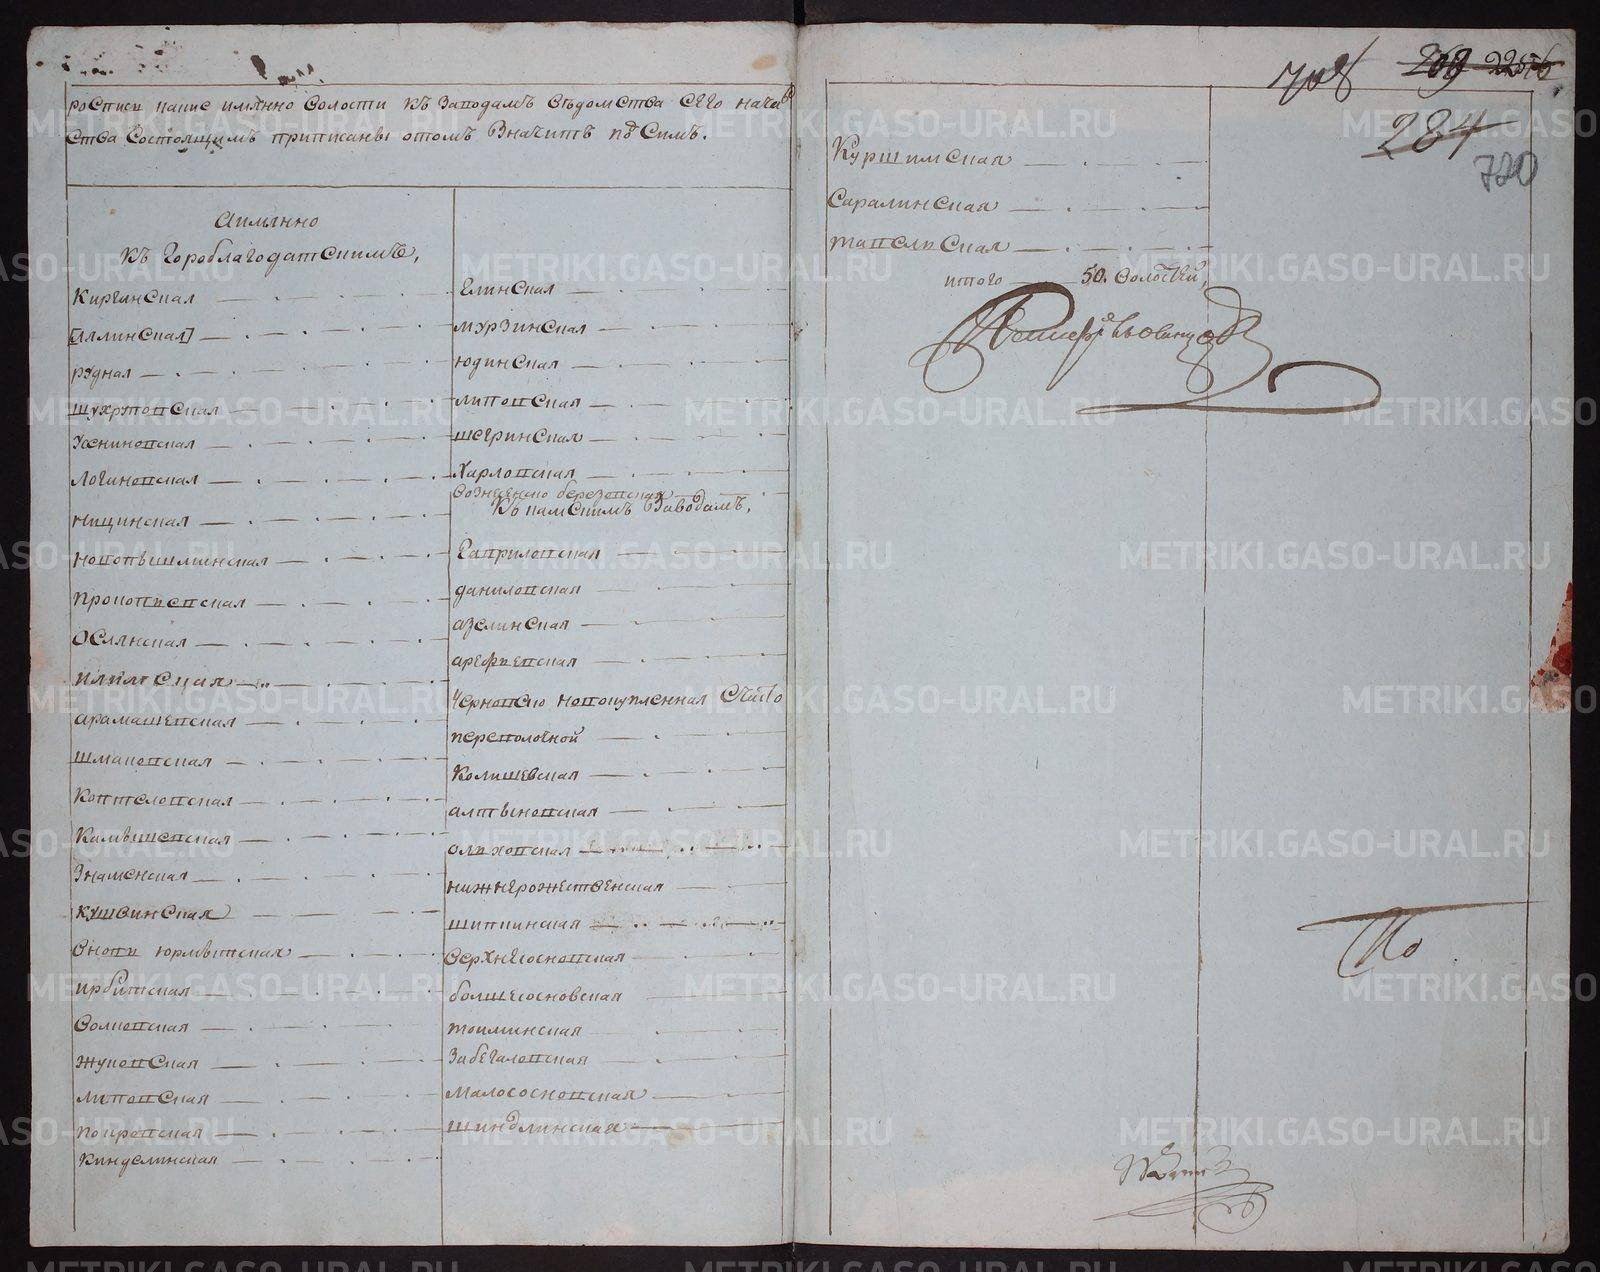 росписи какие имянно волости къ заводамъ ведомства сего начал
ства состоящимъ приписаны отомъ значитъ подъ симъ.
Аимянно
къ Гороблагодатскимъ,
Киргинская
[яллинская]
рудная
Усениновская
Логиновская
ницинская
новопышминская
прокопиевская
ослянская
арамашевская
шмаковская
Коптеловская
Камышевская
Знаменская
Кушвинская
вновь юрмытская
ирбитская
волковская
жуковская
липовская
покровская
Кинделинская
елинская
мурзинская
юдинская
липовская
шегринская
Харловская
вознесенско березовская
Ко камскимъ Заводамъ,
Гавриловская
даниловская
азелинская
арефиевская
Черновско новокупленная
переволочной
Колишевская
алтыновская
олиховская
нижнерожественская
шипицинская
верхнесосновская
болшесосновская
тоиминская
Забегаловская
малососновская
шиндлинская
708
269 2256
284
720
Куршимская
Саралинская
такслинская
итого 50. волостей,
По
METRIKI.GASO-URAL.RU